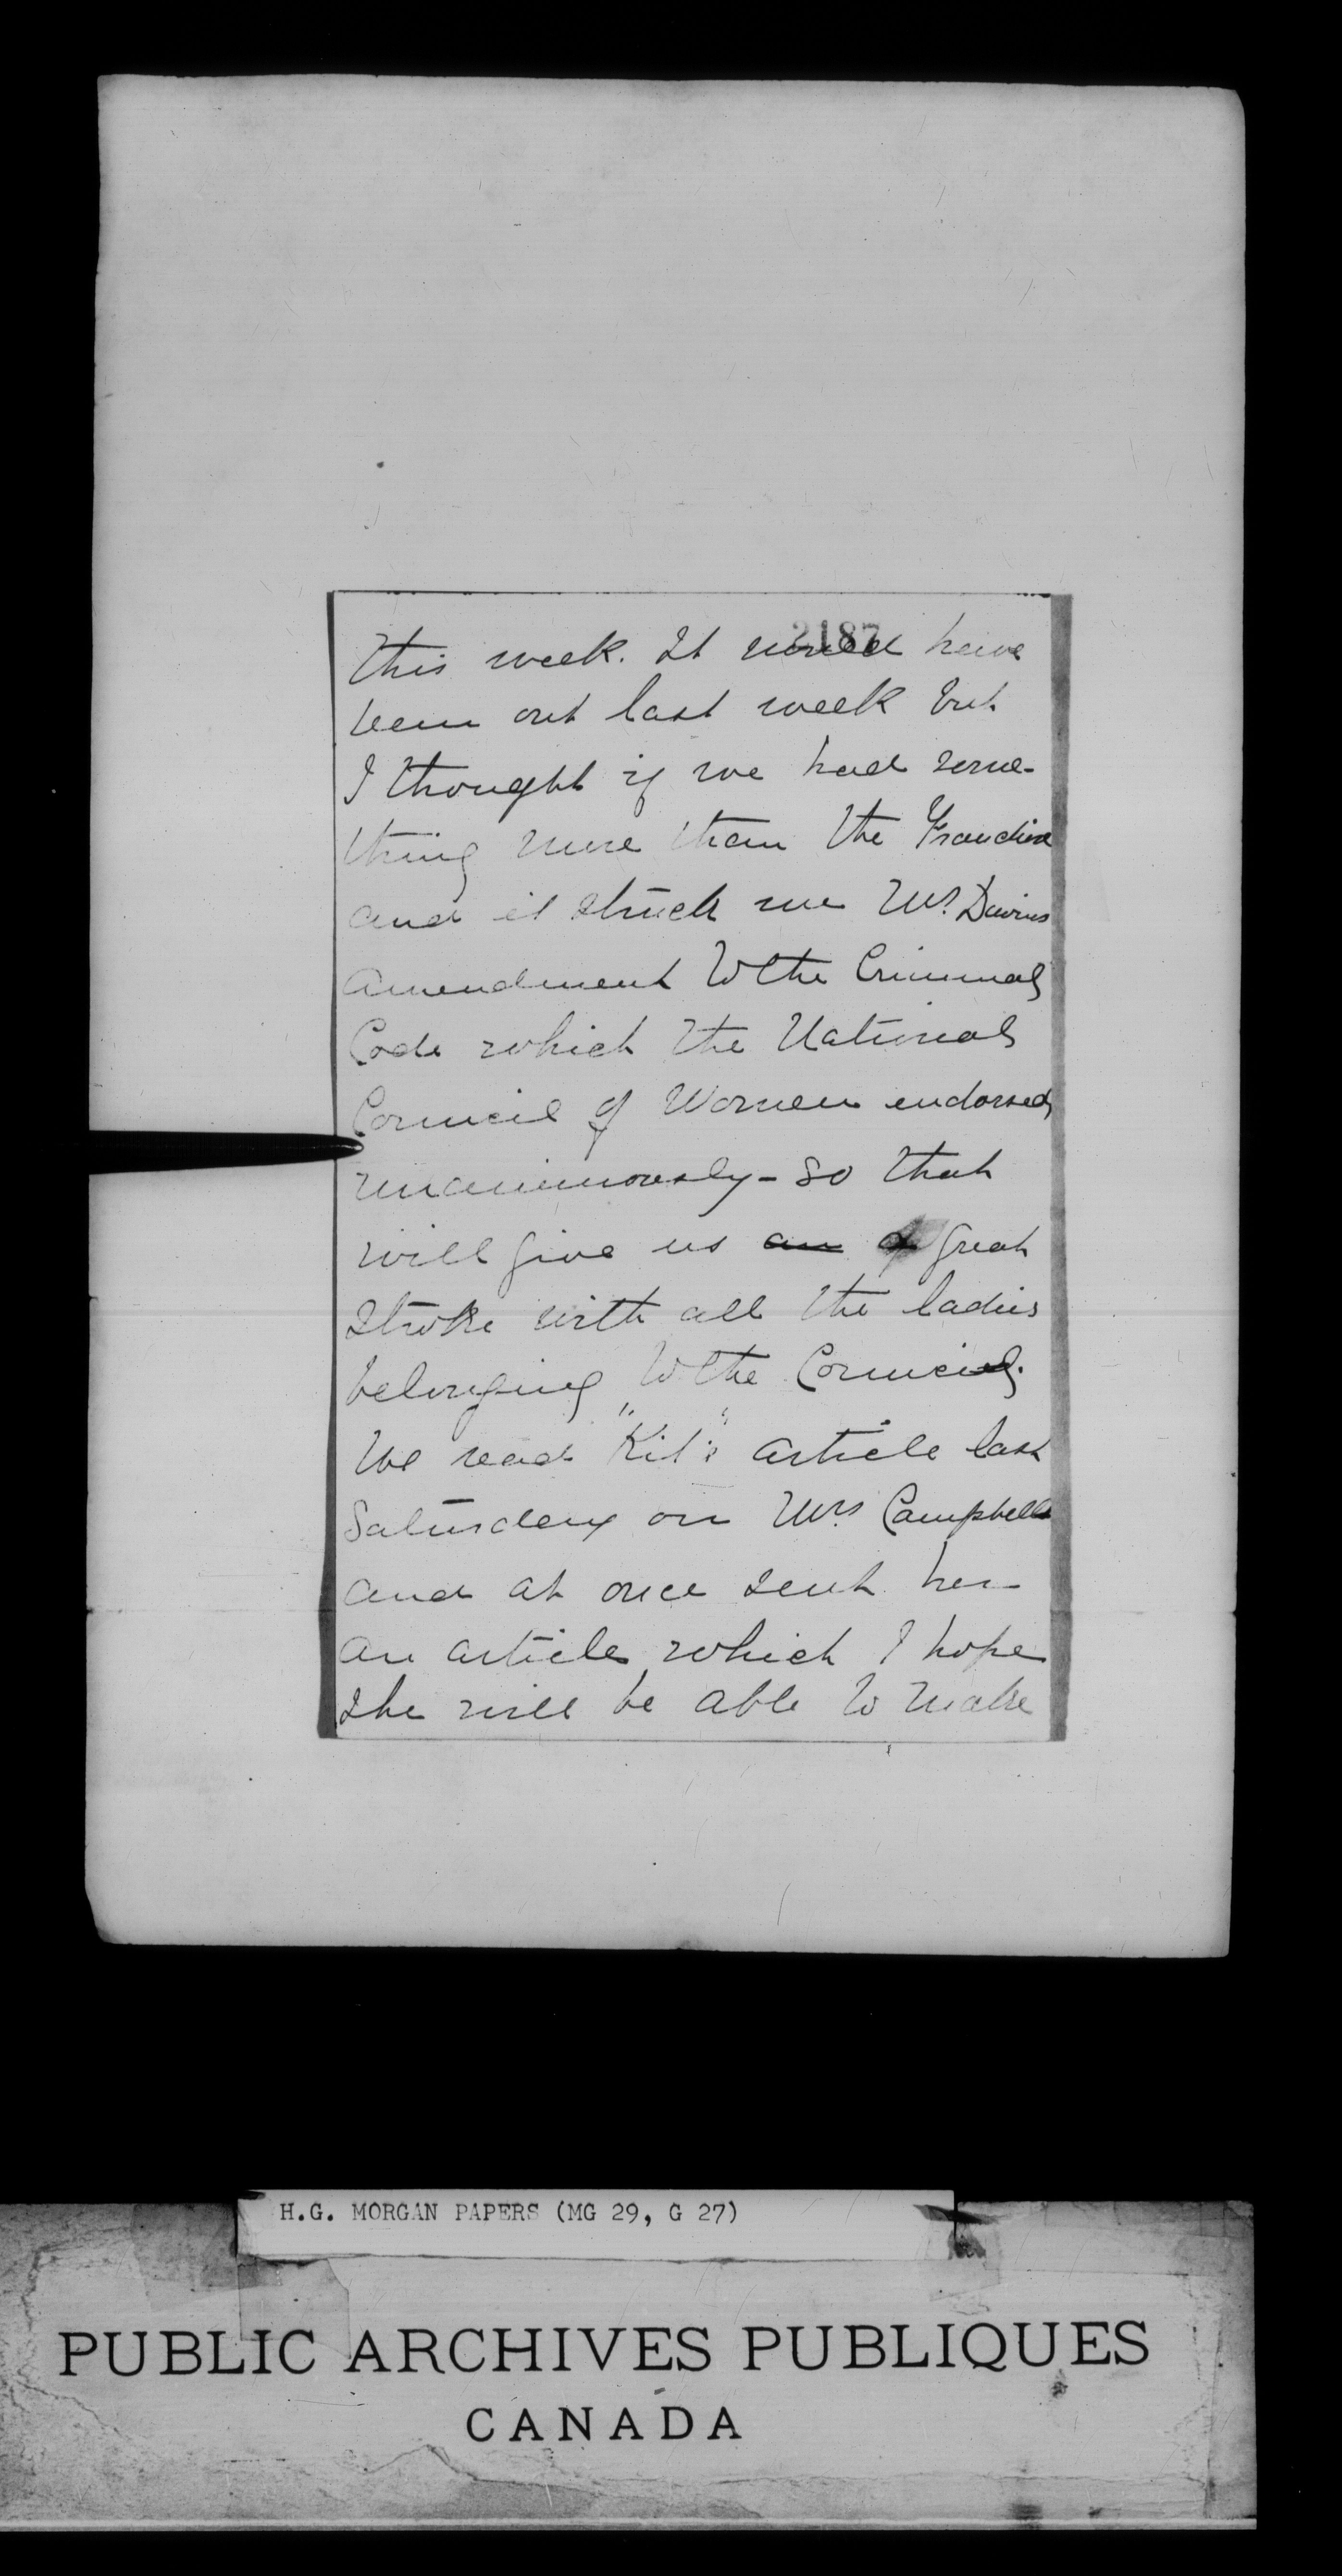 2187
This week. It would have
been out last week but
I thought if we had some-
thing more than the Franchise
and it struck me Mr. Davins
amendment to the Criminal
Code which the National
Council of Women endorsed
unanimously - so that
will give us an a great
stroke with all the ladies
belonging to the Council.
We read "Kit's" article last
Saturday on Mrs Campbell
and at once sent her
an article which I hope
she will be able to make
H.G. MORGAN PAPERS (MG 29, G 27)
PUBLIC ARCHIVES PUBLIQUES
CANADA